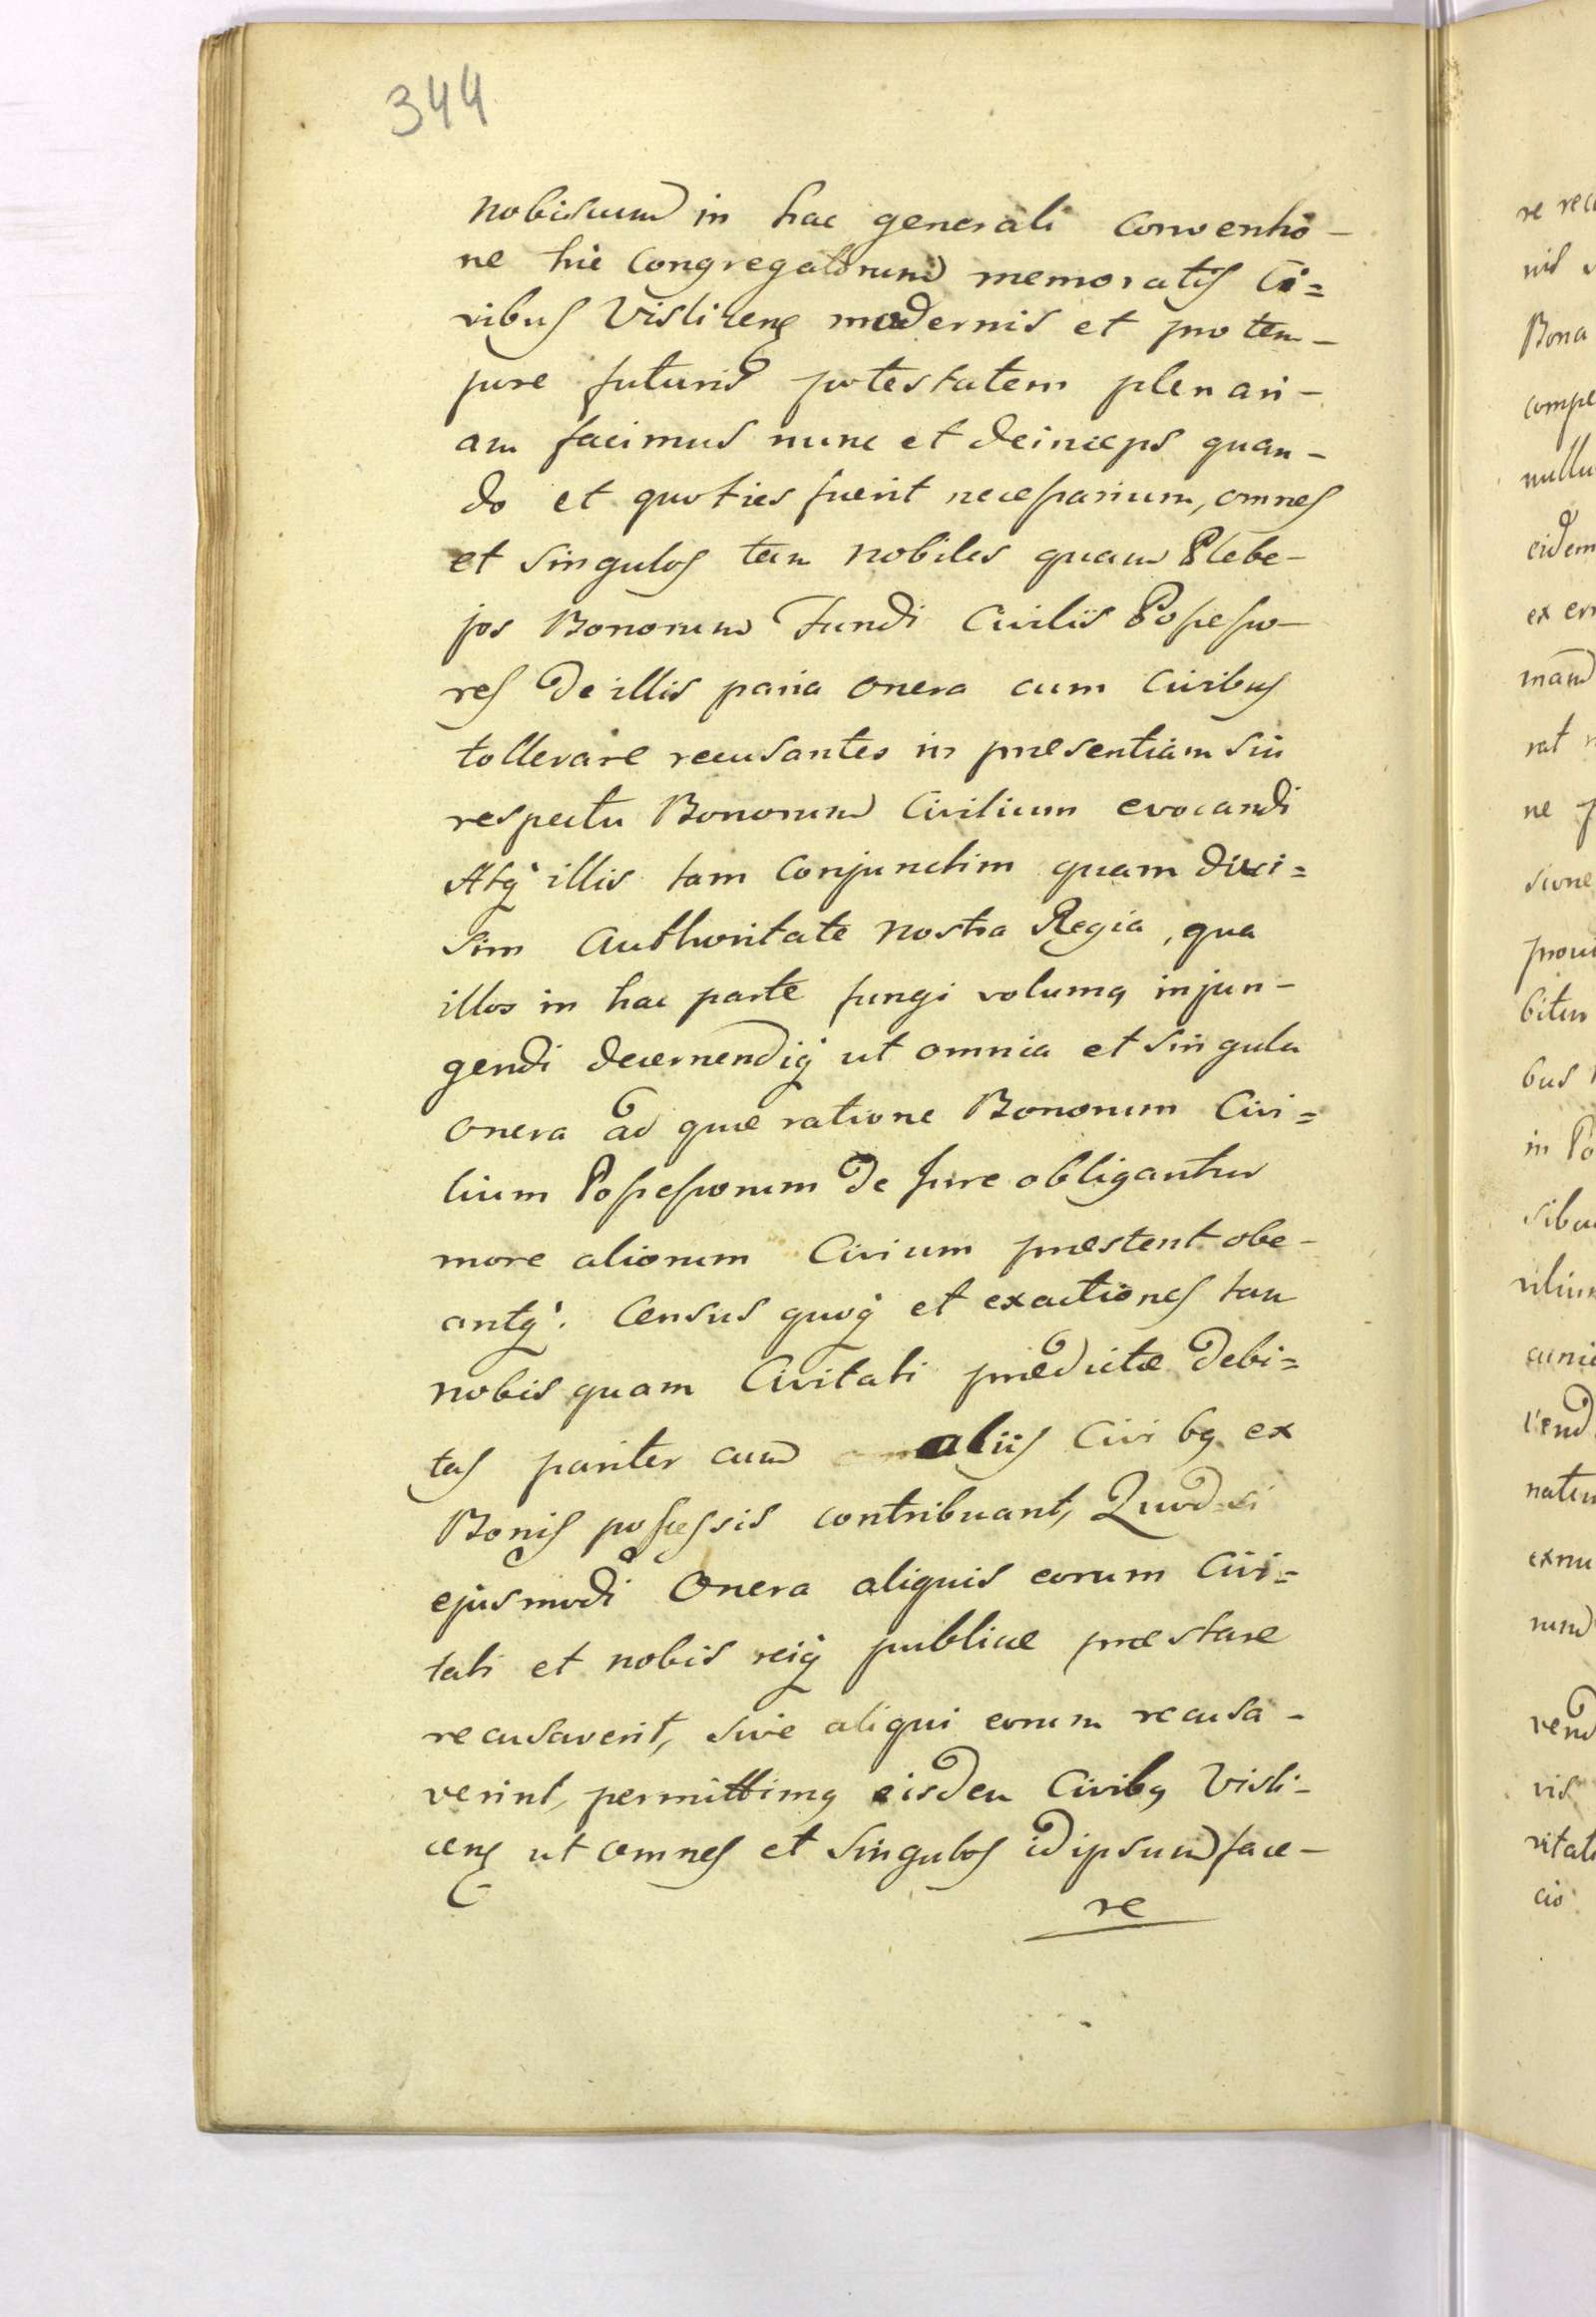 344
nobiscum in hac generali Conventio-
ne hic Congregatorum memoratis Ci=
vibus Vislicens modernis et pro tem-
pore futuris potestatem plenari-
am facimus nunc et deinceps quan-
do et quoties fuerit necessarium, omnes
et singulos tam nobiles quam Plebe-
jos Bonorum Fundi Civilis Possesso-
res de illis paria onera cum Civibus
tollerare recusantes in præsentiam sui
respectu Bonorum Civilium evocandi
Atq illis tam Conjunctim quam divi=
sim Authoritate nostra Regia, qua
illos in hac parte fungi volumq injun-
gendi decernendiq ut omnia et singula
onera ad quæ ratione Bonorum Civi=
lium Possessorum de Jure obligantur
more aliorum Civium præstent obe-
antq. Census quoq et exactiones tam
nobis quam Civitati prædictæ debi=
tas pariter cum aliis Civibq ex
Bonis possessis contribuant, Quod si
ejusmodi Onera aliquis eorum Civi=
tati et nobis reiq publicæ præstare
recusaverit, sive aliqui eorum recusa-
verint, permittimq eisdem Civibq Visli-
cens ut omnes et singulos id ipsum face-
re
re
nis
Bona
compe
nullu
eidem
ex
mam
rat
ne p
sione
bitur
bus
in Po
viliu
vend
natu
rum
vend
vis
vitat
cio